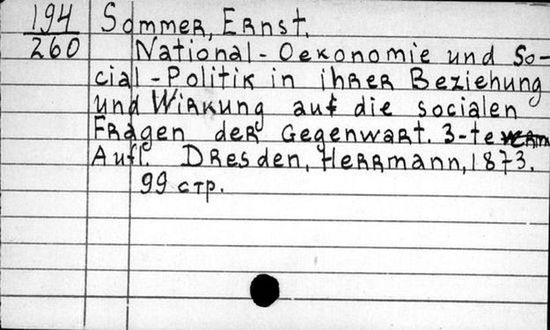 194 Sommer, Ernst.
260 National-Oekonomie und So-
cial-Politik in ihrer Beziehung
und Wirkung auf die socialen
Fragen der Gegenwart. 3-te
Aufl. Dresden, Herrmann, 1873.
99 стр.